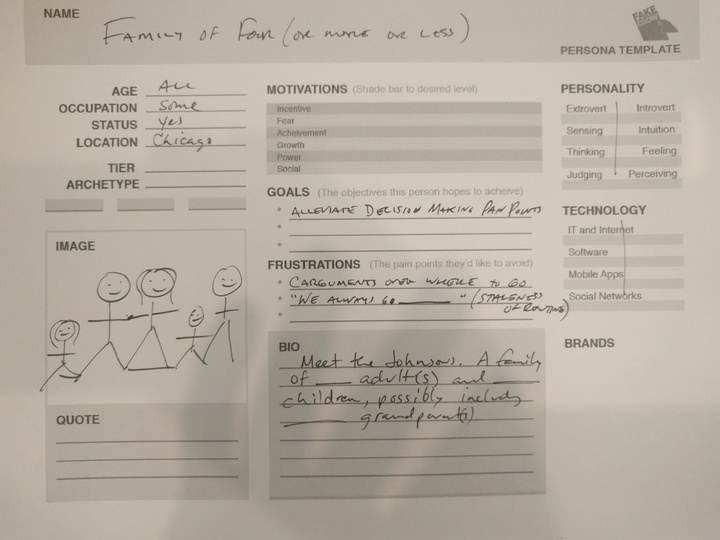 NAME
FAMILY OF FOUR (OR MORE OR LESS)
FAKE CROW
PERSONA TEMPLATE
AGE ALL
OCCUPATION SOME
STATUS YES
LOCATION CHICAGO
TIER
ARCHETYPE
IMAGE
QUOTE
MOTIVATIONS (Shade bar to desired level)
Incentive
Fear
Acheivement
Growth
Power
Social
GOALS (The objectives this person hopes to acheive)
ALLEVIATE DECISION MAKING PAIN POINTS
FRUSTRATIONS (The pain points they'd like to avoid)
CARGUMENTS OVER WHERE TO GO
"WE ALWAYS GO ______" (STALENESS
OF ROUTINE)
BIO
Meet the Johnsons. A family
of ____ adult(s) and ____
children, possibly including
____ grandparent(s)
PERSONALITY
Extrovert Introvert
Sensing Intuition
Thinking Feeling
Judging Perceiving
TECHNOLOGY
IT and Internet
Software
Mobile Apps
Social Networks
BRANDS